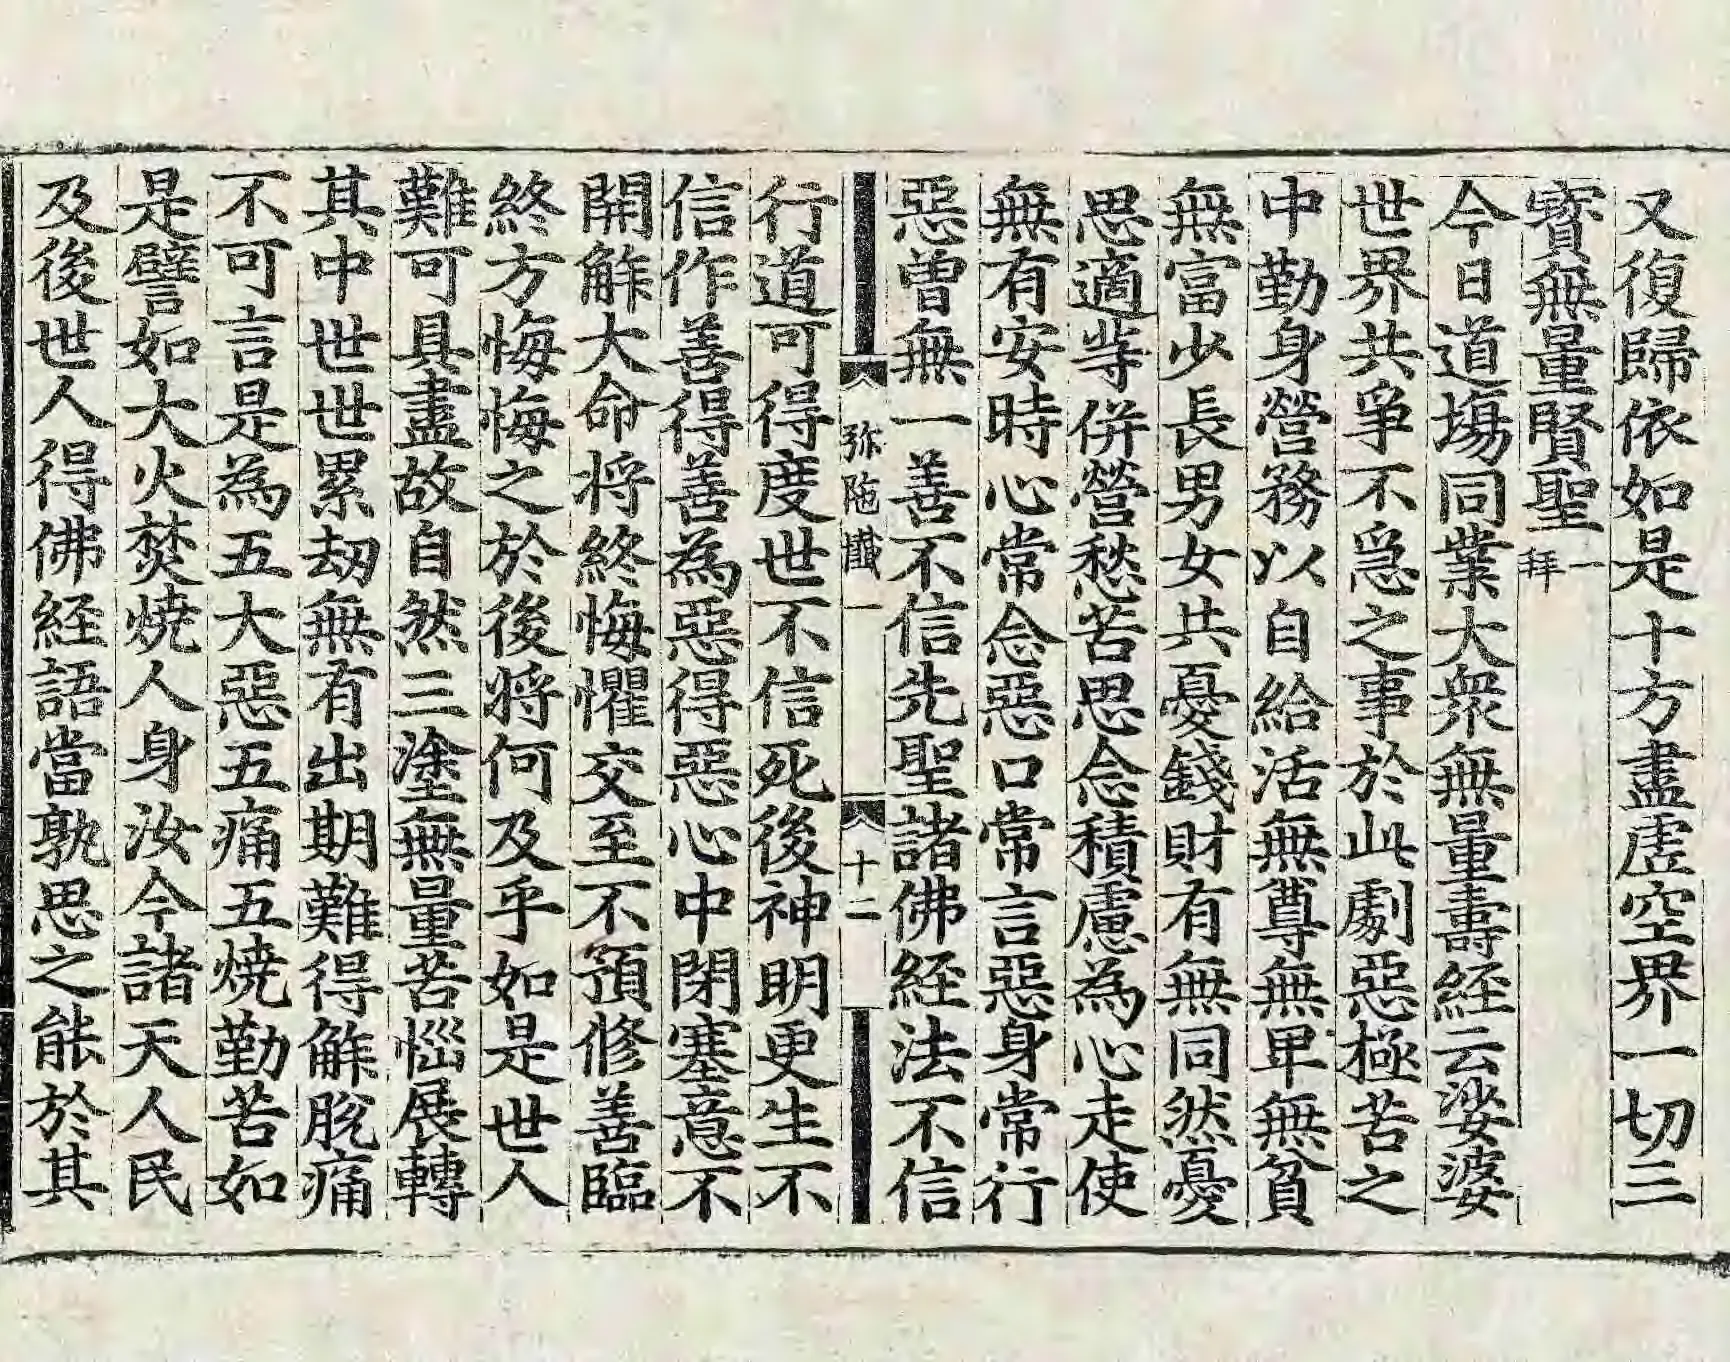 又復歸依如是十方盡虛空界一切三
寶無量賢聖一拜
今日道場同業大衆無量壽經云娑婆
世界共爭不急之事於此劇惡極苦之
中勤身營務以自給活無尊無卑無貧
無富少長男女共憂錢財有無同然憂
思適等併營愁苦思念積慮為心走使
無有安時心常念惡口常言惡身常行
惡曾無一善不信先聖諸佛經法不信
弥陁懺一 十二
行道可得度世不信死後神明更生不
信作善得善為惡得惡心中閉塞意不
開解大命将終悔懼交至不預修善臨
終方悔悔之於後将何及乎如是世人
難可具盡故自然三塗無量苦惱展轉
其中世世累劫無有出期難得解脫痛
不可言是為五大惡五痛五燒勤苦如
是譬如大火焚燒人身汝今諸天人民
及後世人得佛經語當孰思之能於其